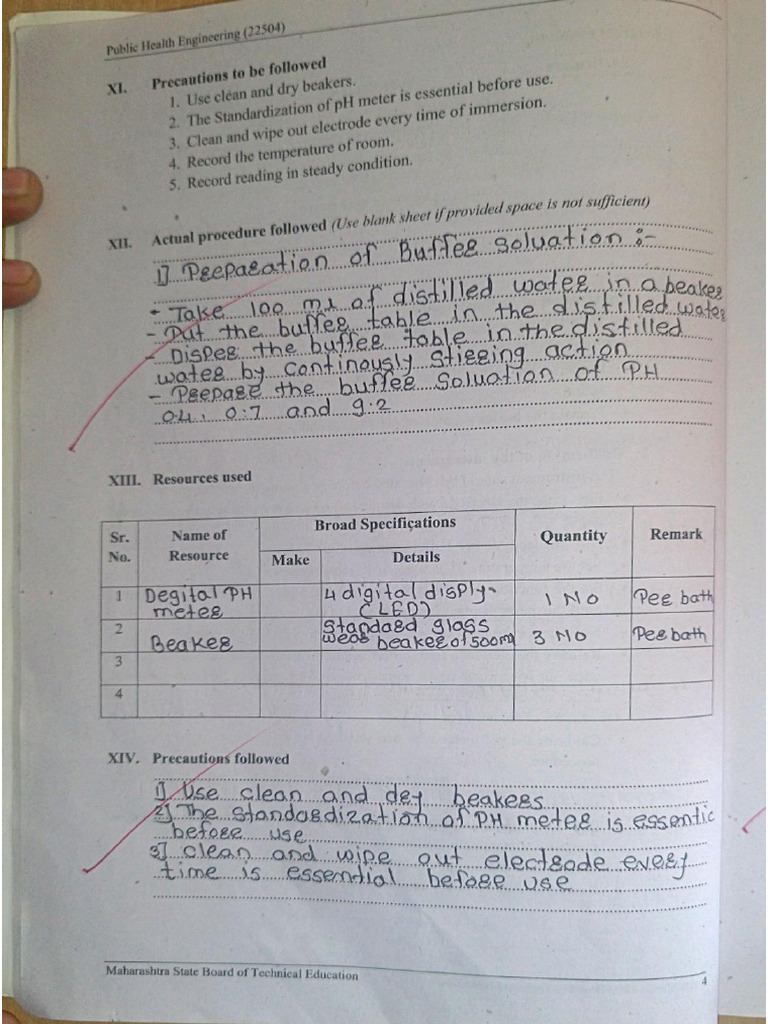 Public Health Engineering (22504)
XI. Precautions to be followed
1. Use clean and dry beakers.
2. The Standardization of pH meter is essential before use.
3. Clean and wipe out electrode every time of immersion.
4. Record the temperature of room.
5. Record reading in steady condition.
XII. Actual procedure followed (Use blank sheet if provided space is not sufficient)
1) Preparation of Buffer soluation :-
- Take 100 ml of distilled water in a beaker
- Put the buffer table in the distilled water
- Disper the buffer table in the distilled
water by continously stirring action
- Prepare the buffer soluation of PH
04, 0.7 and 9.2
XIII. Resources used
Sr. No. Name of Resource Broad Specifications Quantity Remark
Make Details
1 Degital PH meter 4 digital disply- (LED) 1 No Per bath
2 Beaker Standard glass wear beaker of 500m 3 No Per bath
3
4
XIV. Precautions followed
1) Use clean and dry beakers
2) The standardization of PH meter is essentic
before use
3) clean and wipe out electrode every
time is essential before use
Maharashtra State Board of Technical Education
4